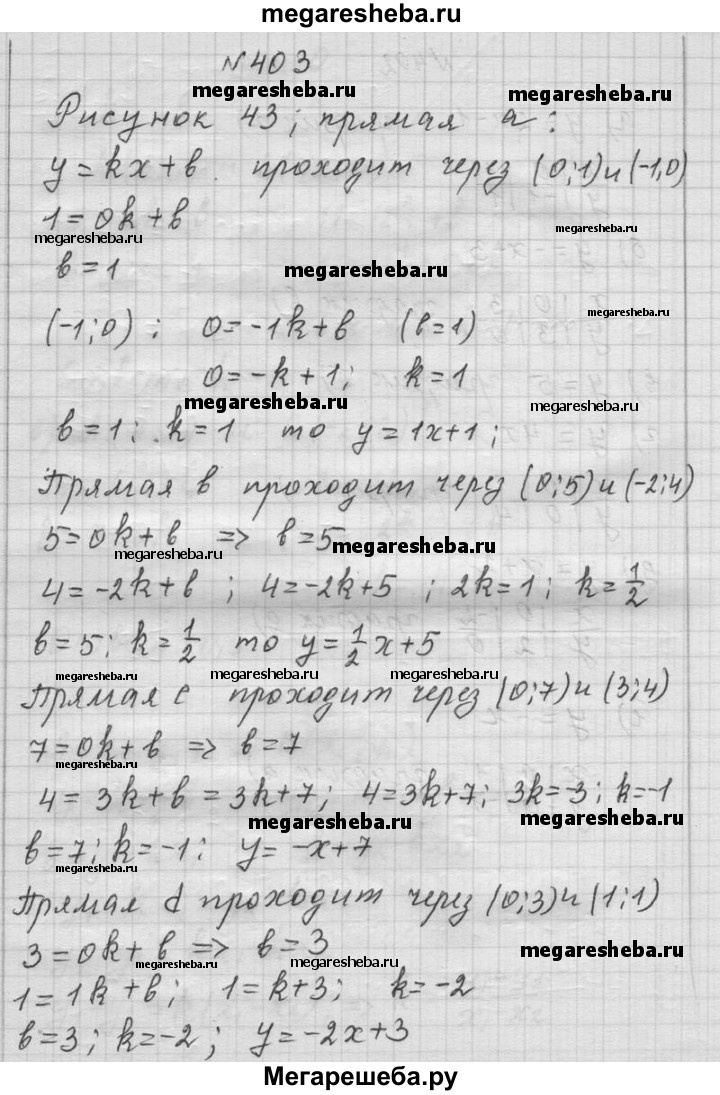 megaresheba.ru
№403
megaresheba.ru megaresheba.ru
Рисунок 43; прямая a:
y=kx+b. проходит через (0;1) и (-1;0)
1=0k+b
megaresheba.ru megaresheba.ru
b=1 megaresheba.ru
megaresheba.ru
(-1;0): 0=-1k+b (b=1)
0=-k+1; k=1
megaresheba.ru megaresheba.ru
b=1; k=1 то y=1x+1;
Прямая b проходит через (0;5) и (-2;4)
5=0k+b => b=5
megaresheba.ru megaresheba.ru
4=-2k+b; 4=-2k+5; 2k=1; k=1/2
b=5; k=1/2 то y=1/2x+5
megaresheba.ru megaresheba.ru megaresheba.ru
Прямая c проходит через (0;7) и (3;4)
7=0k+b => b=7
megaresheba.ru
4=3k+b=3k+7; 4=3k+7; 3k=-3; k=-1
megaresheba.ru megaresheba.ru
b=7; k=-1: y=-x+7
megaresheba.ru
Прямая d проходит через (0;3) и (1;1)
3=0k+b => b=3
megaresheba.ru megaresheba.ru megaresheba.ru
1=1k+b; 1=k+3; k=-2
b=3; k=-2; y=-2x+3
Мегарешеба.ру